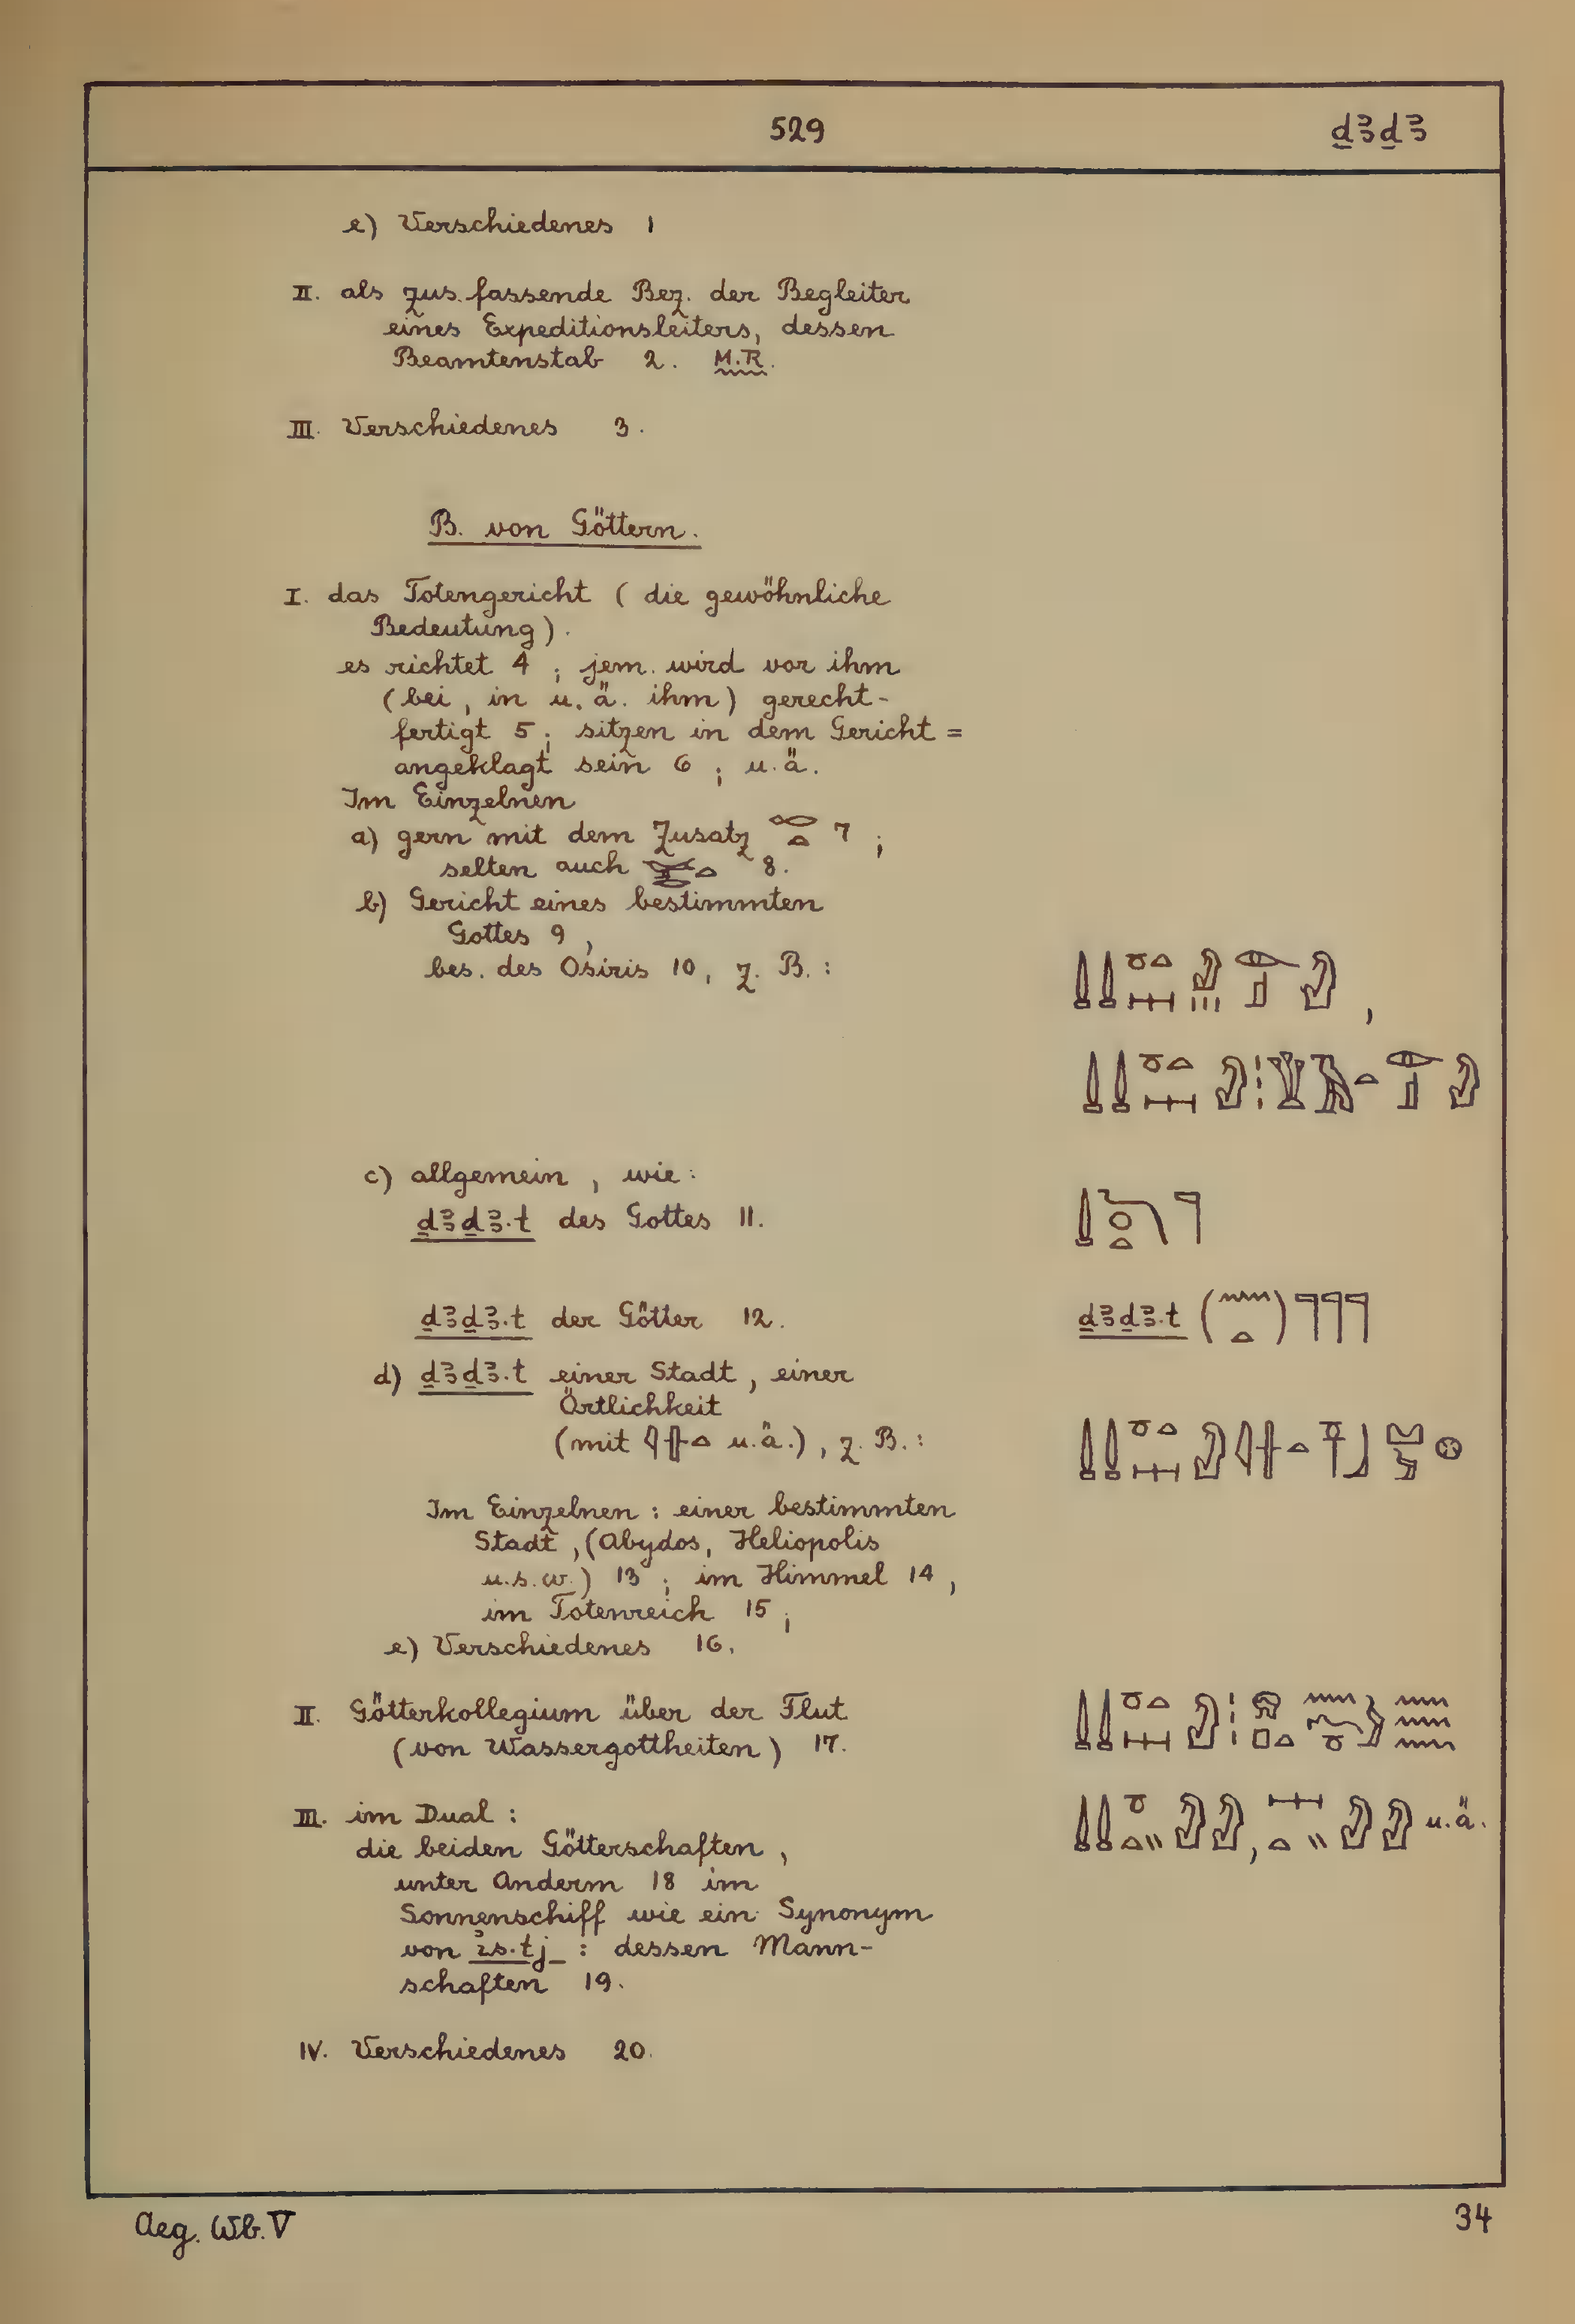 529 ḏꜣḏꜣ
e) Verschiedenes 1
II. als zus.fassende Bez. der Begleiter
eines Expeditionsleiters, dessen
Beamtenstab 2. M.R.
III. Verschiedenes 3.
B. von Göttern.
I. das Totengericht ( die gewöhnliche
Bedeutung ).
es richtet 4 ; jem. wird vor ihm
( bei , in u. ä. ihm ) gerecht-
fertigt 5 ; sitzen in dem Gericht =
angeklagt sein 6 ; u. ä.
Im Einzelnen
a) gern mit dem Zusatz 7 ;
selten auch 8.
b) Gericht eines bestimmten
Gottes 9 ,
bes. des Osiris 10 , z. B. :
c) allgemein , wie :
ḏꜣḏꜣ.t des Gottes 11.
ḏꜣḏꜣ.t der Götter 12. ḏꜣḏꜣ.t
d) ḏꜣḏꜣ.t einer Stadt , einer
Örtlichkeit
(mit u. ä.) , z. B. :
Im Einzelnen : einer bestimmten
Stadt , (Abydos, Heliopolis
u. s. w.) 13 ; im Himmel 14 ,
im Totenreich 15 ;
e) Verschiedenes 16.
II. Götterkollegium über der Flut
( von Wassergottheiten ) 17.
III. im Dual : u. ä.
die beiden Götterschaften ,
unter Anderm 18 im
Sonnenschiff wie ein Synonym
von ꞽs.tj : dessen Mann-
schaften 19.
IV. Verschiedenes 20.
Aeg. Wb. V 34